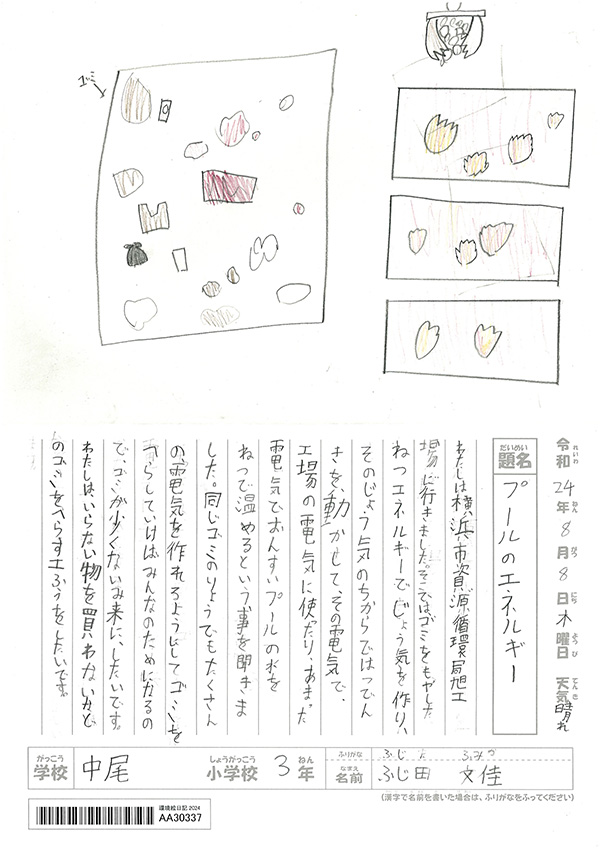 ゴミ
令和24年8月8日木曜日 天気晴れ
れいわ ねん がつ にち ようび てんき
だいめい
題名 プールのエネルギー
わたしは横浜市資源循環局旭工
場に行きました。そこではゴミをもやした
ねつエネルギーでじょう気を作り、
そのじょう気のちからではつでん
きを、動かして、その電気で、
工場の電気に使ったり、あまった
電気でおんすいプールの水を
ねつで温めるという事を聞きま
した。同じゴミのりょうでもたくさん
の電気を作れるようにしてゴミを
へらしていけばみんなのためになるの
で、ゴミが少くないみ来に、したいです。
わたしは、いらない物を買わないなど
のゴミをへらす工ふうをしたいです。
がっこう しょうがっこう ねん ふりがな ふじた ふみか
学校 中尾 小学校 3年 なまえ 名前 ふじ田 文佳
(漢字で名前を書いた場合は、ふりがなをふってください)
環境絵日記2024
AA30337